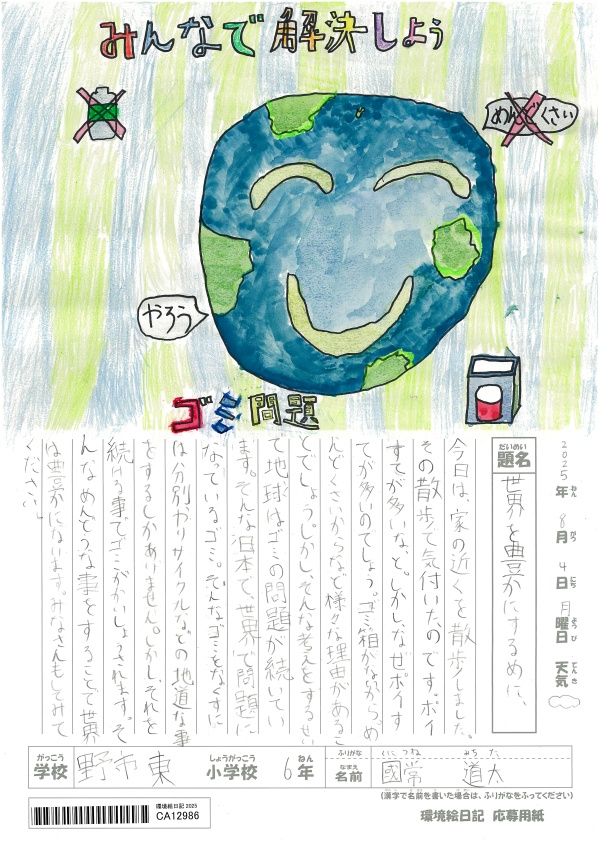 みんなで解決しよう
めんどくさい
やろう
ゴミ問題
2025年 8月 4日 月曜日 天気
ねん がつ にち ようび てんき
だいめい
題名
世界を豊かにするめに、
今日は、家の近くを散歩しました。
その散歩で気付いたのです。ポイ
すてが多いな、と。しかしなぜポイす
てが多いのでしょう。ゴミ箱がないからめ
んどくさいからなど様々な理由があるこ
とでしょう。しかし、そんな考えをするせい
で地球はゴミの問題が続いてい
ます。そんな日本で、世界で問題に
なっているゴミ。そんなゴミをなくすに
は分別、やリサイクルなどの地道な事
をするしかありません。しかし、それを
続ける事でゴミがかいしょうされます。そ
んなめんどうな事をすることで世界
は豊かになります。みなさんもしてみて
ください。
がっこう しょうがっこう ねん
学校 野市東 小学校 6年
ふりがな くにつね みちた
なまえ
名前 國常 道太
(漢字で名前を書いた場合は、ふりがなをふってください)
環境絵日記 2025
CA12986
環境絵日記 応募用紙